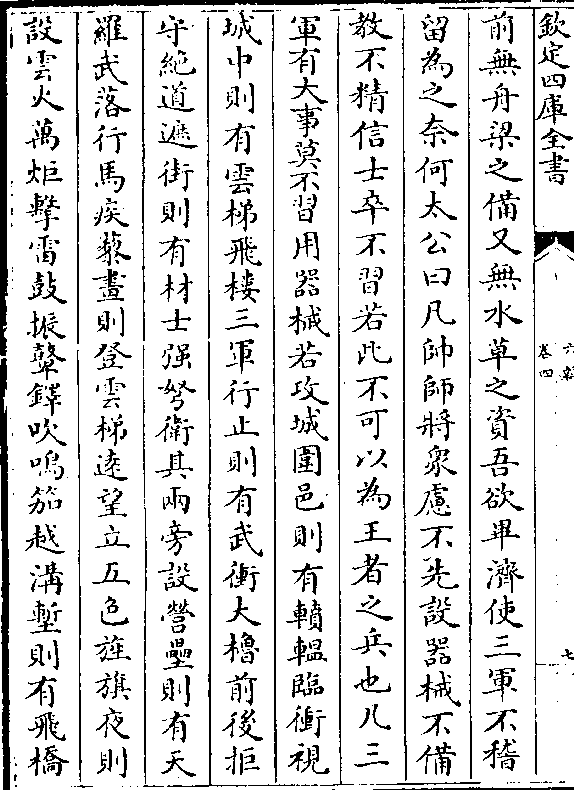 欽定四庫全書
六韜
卷四
七
前無舟梁之備又無水草之資吾欲畢濟使三軍不稽
留為之奈何太公曰凡帥師將衆慮不先設器械不備
教不精信士卒不習若此不可以為王者之兵也凡三
軍有大事莫不習用器械若攻城圍邑則有轒轀臨衝視
城中則有雲梯飛樓三軍行止則有武衝大櫓前後拒
守絶道遮街則有材士强弩衛其兩旁設營壘則有天
羅武落行馬疾藜晝則登雲梯逺望立五色旌旗夜則
設雲火萬炬擊雷鼓振鼙鐸吹鳴笳越溝塹則有飛橋